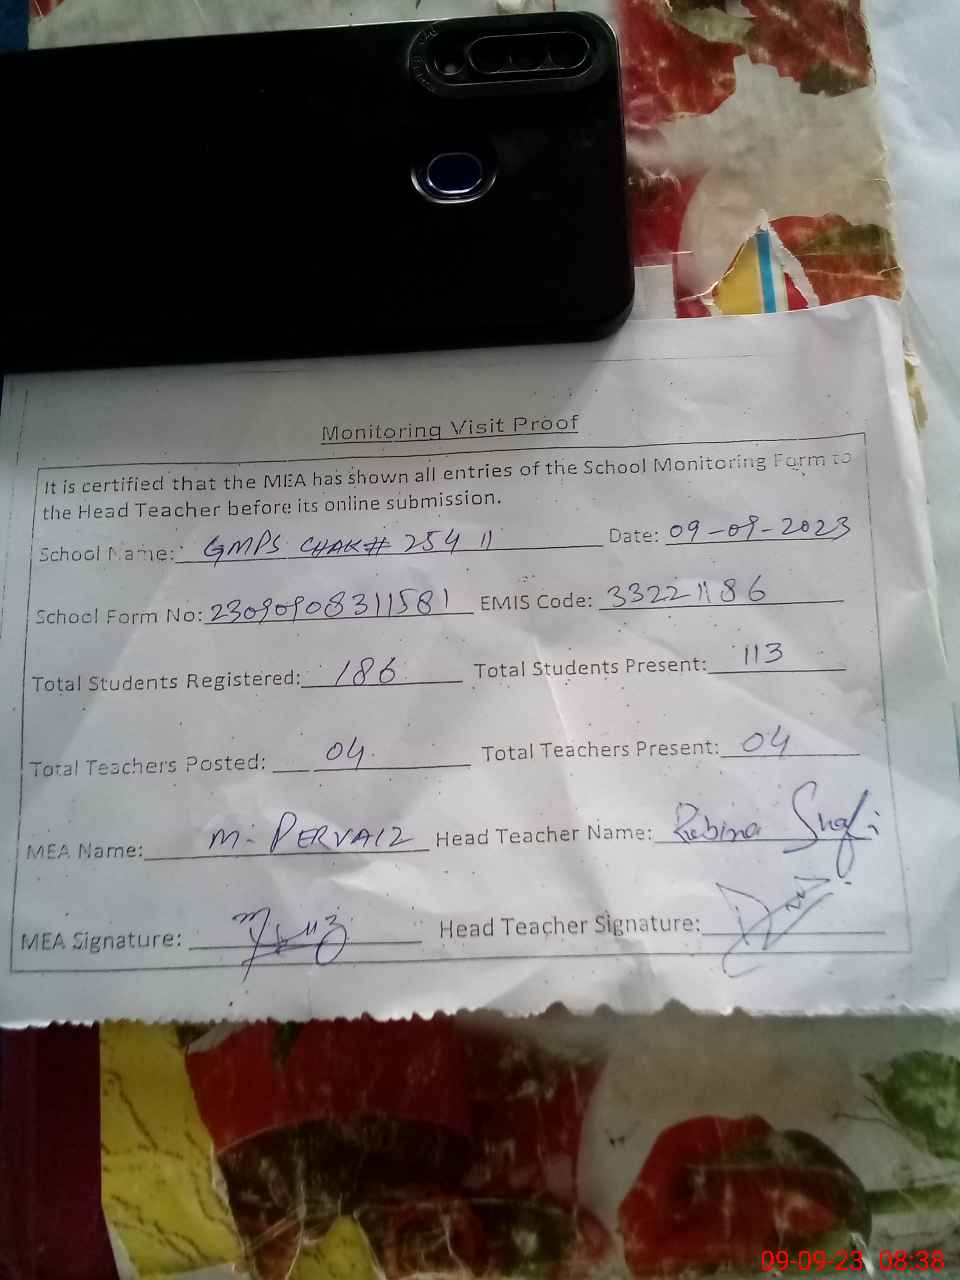 Monitoring Visit Proof
It is certified that the MEA has shown all entries of the School Monitoring Form to
the Head Teacher before its online submission.
School Name: GMPS CHAK# 254 11 Date: 09-09-2023
School Form No: 23090908311581 EMIS Code: 33221186
Total Students Registered: 186 Total Students Present: 113
Total Teachers Posted: 04 Total Teachers Present: 04
MEA Name: M. PERVAIZ Head Teacher Name: Rubina Shafi
MEA Signature: Head Teacher Signature:
09-09-23 08:38